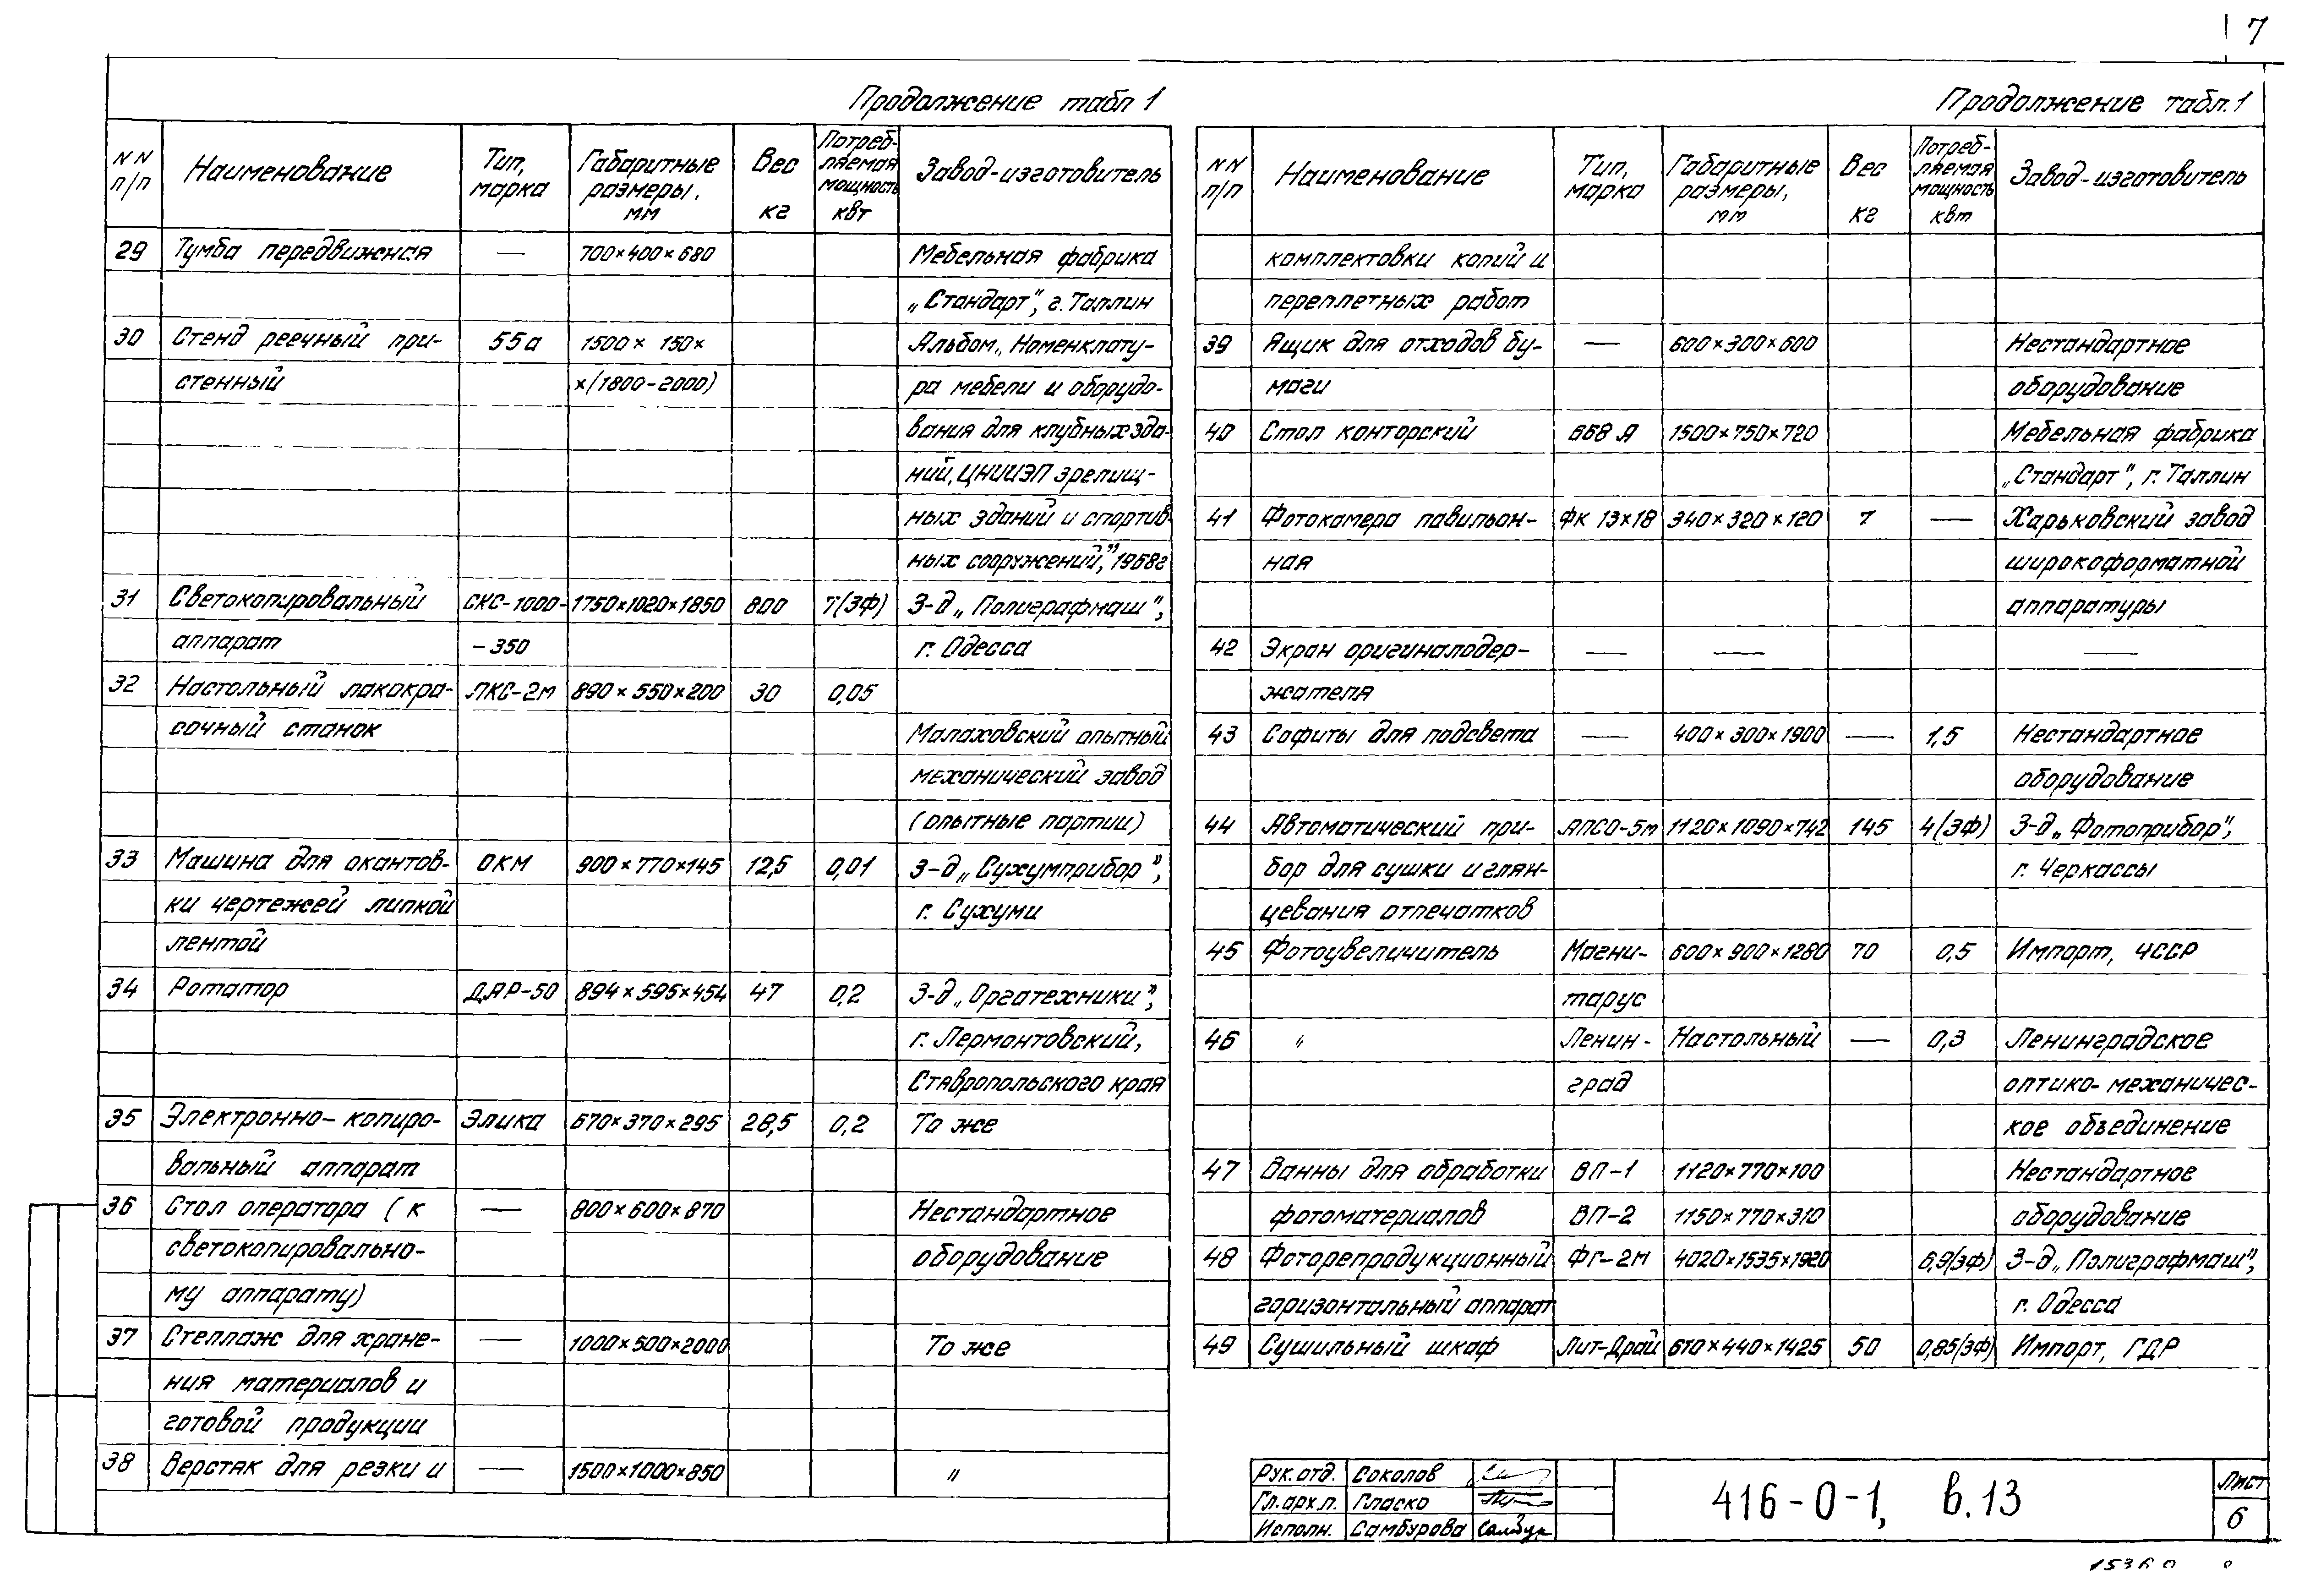 7
Продолжение табл 1
N N п/п Наименование Тип, марка Габаритные размеры, мм Вес кг Потреб-ляемая мощность квт Завод-изготовитель
29 Тумба передвижная — 700×400×680 Мебельная фабрика
„Стандарт", г. Таллин
30 Стенд реечный при- 55а 1500 × 150× Альбом „Номенклату-
стенный ×(1800-2000) ра мебели и оборудо-
вания для клубных зда-
ний, ЦНИИЭП зрелищ-
ных зданий и спортив-
ных сооружений," 1968г
31 Светокопировальный СКС-1000- 1750×1020×1850 800 7(3ф) З-д „Полиграфмаш",
аппарат -350 г. Одесса
32 Настольный лакокра- ЛКС-2м 890×550×200 30 0,05
сочный станок Малаховский опытный
механический завод
(опытные партии)
33 Машина для окантов- ОКМ 900×770×145 12,5 0,01 З-д „Сухумприбор",
ки чертежей липкой г. Сухуми
лентой
34 Ротатор ДАР-50 894×595×454 47 0,2 З-д „Оргатехники",
г. Лермонтовский,
Ставропольского края
35 Электронно-копиро- Элика 670×370×295 28,5 0,2 То же
вальный аппарат
36 Стол оператора (к — 800×600×870 Нестандартное
светокопировально- оборудование
му аппарату)
37 Стеллаж для хране- — 1000×500×2000 То же
ния материалов и
готовой продукции
38 Верстак для резки и — 1500×1000×850 "
Продолжение табл. 1
N N п/п Наименование Тип, марка Габаритные размеры, мм Вес кг Потреб-ляемая мощность квт Завод-изготовитель
комплектовки копий и
переплетных работ
39 Ящик для отходов бу- — 600×300×600 Нестандартное
маги оборудование
40 Стол конторский 668 А 1500×750×720 Мебельная фабрика
„Стандарт", г. Таллин
41 Фотокамера павильон- ФК 13×18 340×320×120 7 — Харьковский завод
ная широкоформатной
аппаратуры
42 Экран оригиналодер- — — —
жателя
43 Софиты для подсвета — 400×300×1900 — 1,5 Нестандартное
оборудование
44 Автоматический при- АПСО-5м 1120×1090×742 145 4(3ф) З-д „Фотоприбор",
бор для сушки и глян- г. Черкассы
цевания отпечатков
45 Фотоувеличитель Магни- 600×900×1280 70 0,5 Импорт, ЧССР
тарус
46 " Ленин- Настольный — 0,3 Ленинградское
град оптико-механичес-
кое объединение
47 Ванны для обработки ВП-1 1120×770×100 Нестандартное
фотоматериалов ВП-2 1150×770×310 оборудование
48 Фоторепродукционный ФГ-2м 4020×1535×1920 6,9(3ф) З-д „Полиграфмаш",
горизонтальный аппарат г. Одесса
49 Сушильный шкаф Лит-Драй 610×440×1425 50 0,85(3ф) Импорт, ГДР
Рук. отд. Соколов
Гл. арх. п. Гласко
Исполн. Самбурова
416-0-1, в.13
Лист
6